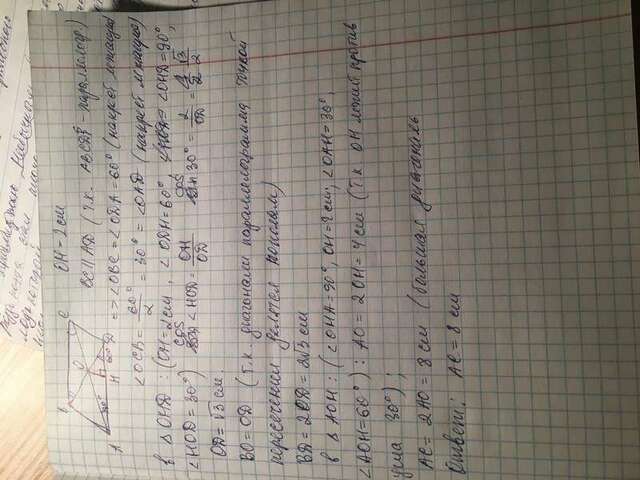 B C
O
30° 60°
A H D
OH = 2 см
BC || AD (т.к. ABCD - параллелогр.)
=> ∠OBC = ∠ODA = 60° (накрест лежащие)
∠OCB = 60°/2 = 30° = ∠OAD (накрест лежащие)
в △ OHD : (OH = 2 см, ∠ODH = 60°, ∠OHD = 90°,
∠HOD = 30°) cos ∠HOD = OH/OD cos 30° = 2/OD = √3/2
OD = √3 см.
BO = OD (т.к. диагонали параллелограмма точкой
пересечения делятся пополам)
BD = 2OD = 2√3 см
в △ AOH : (∠OHA = 90°, OH = 2 см; ∠OAH = 30°,
∠AOH = 60°) : AO = 2OH = 4 см (т.к. OH лежит против
угла 30°) ;
AC = 2AO = 8 см (большая диагональ
Ответ: AC = 8 см